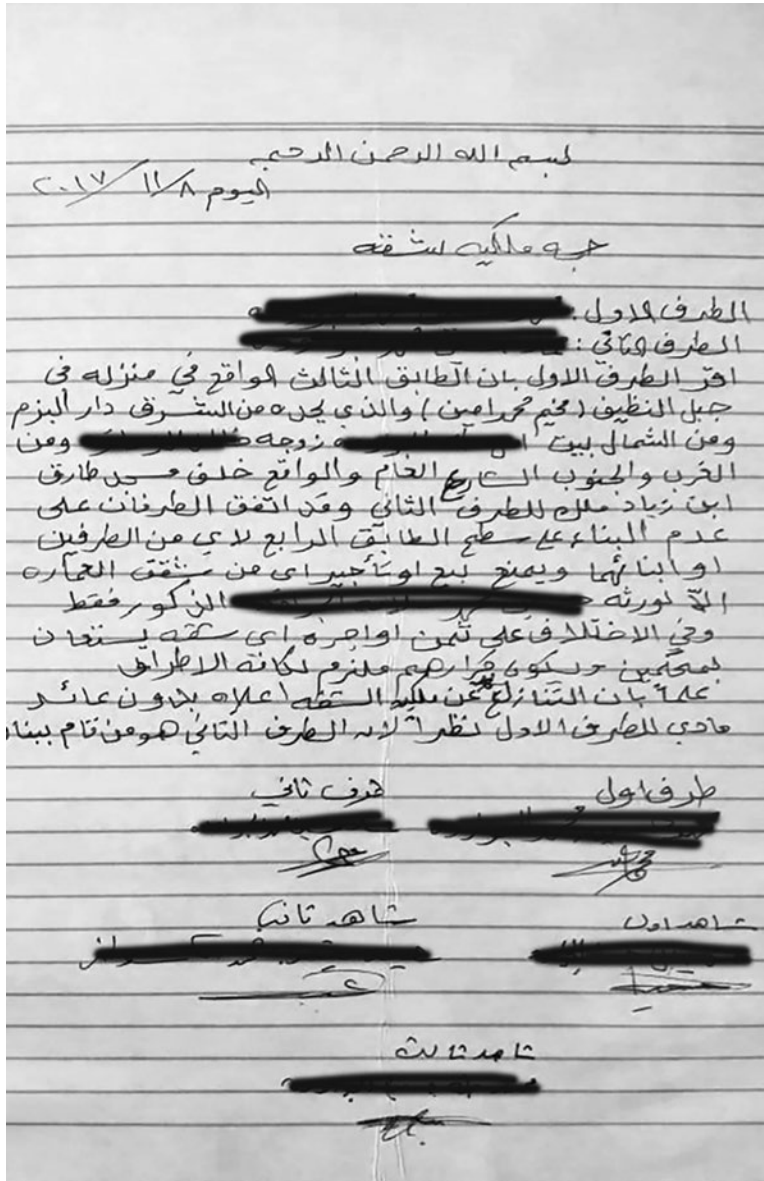 بسم الله الرحمن الرحيم
اليوم ٢٠١٧/١١/٨
حجه ملكيه لشقه
الطرف الاول:
الطرف الثاني:
اقر الطرف الاول بان الطابق الثالث الواقع في منزله في
جبل النظيف (مخيم محمد امين) والذي يحده من الشرق دار البزم
ومن الشمال بيت زوجه ومن
الغرب والجنوب الشارع العام والواقع خلف مسجد طارق
ابن زياد ملك للطرف الثاني وقد اتفق الطرفان على
عدم البناء على سطح الطابق الرابع لاي من الطرفين
او ابنائهما ويمنع بيع او تأجير اي من شقق العماره
الا لورثه المذكور فقط
وفي الاختلاف على ثمن او اجره اي شقه يستعان
بمحكمين ويكون قرارهم ملزم لكافه الاطراف
علماً بان التنازل عن ملكيه الشقه اعلاه بدون عائد
مادي للطرف الاول نظراً لان الطرف الثاني هو من قام ببناء
طرف اول طرف ثاني
شاهد اول شاهد ثاني
شاهد ثالث